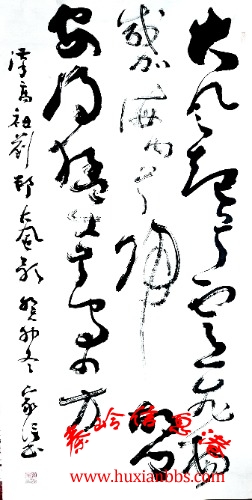 大风兮起兮云飞扬
威加海内兮归故
安得猛士兮守四方
汉高祖刘邦大风歌 癸卯冬
www.huxianbbs.com